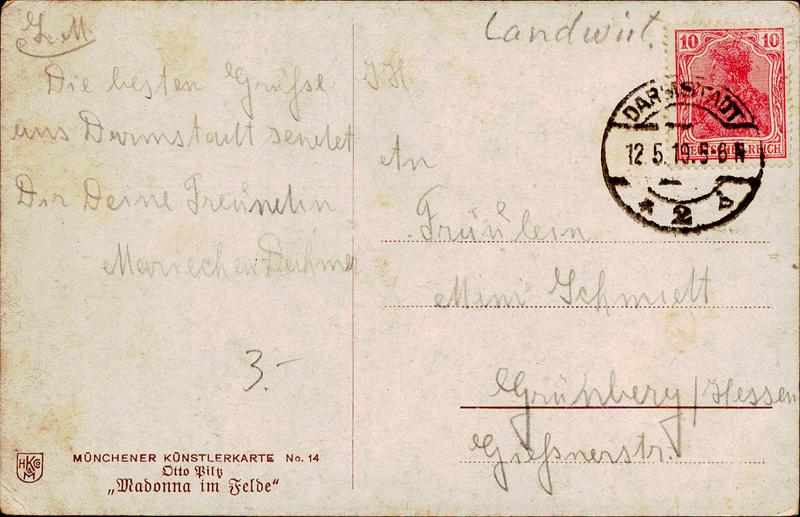 L. M.
Die besten Grüsse
aus Darmstadt sendet
Dir Deine Freundin
Mariechen
3.-
MÜNCHENER KÜNSTLERKARTE No. 14
Otto Piltz
„Madonna im Felde“
HKCo
M
Landwirt.
10 10
DEUTSCHES REICH
DARMSTADT
12.5.19.5-6 N
* 2
An
Fräulein
Mimi Schmidt
Grünberg / Hessen
Giessnerstr.